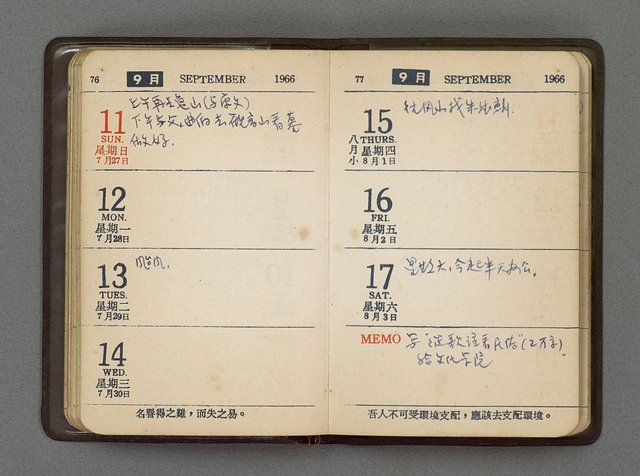 76 9月 SEPTEMBER 1966
11
SUN.
星期日
7月27日
上午再去 山(与
下午与文
做好.
12
MON.
星期一
7月28日
13
TUES.
星期二
7月29日
颱风.
14
WED.
星期三
7月30日
名譽得之難，而失之易。
77 9月 SEPTEMBER 1966
15
八月小
THURS.
星期四
8月1日
16
FRI.
星期五
8月2日
17
SAT.
星期六
8月3日
星期六,今起半天办公。
MEMO
写 (2万字)
給文化学院
吾人不可受環境支配，應該去支配環境。